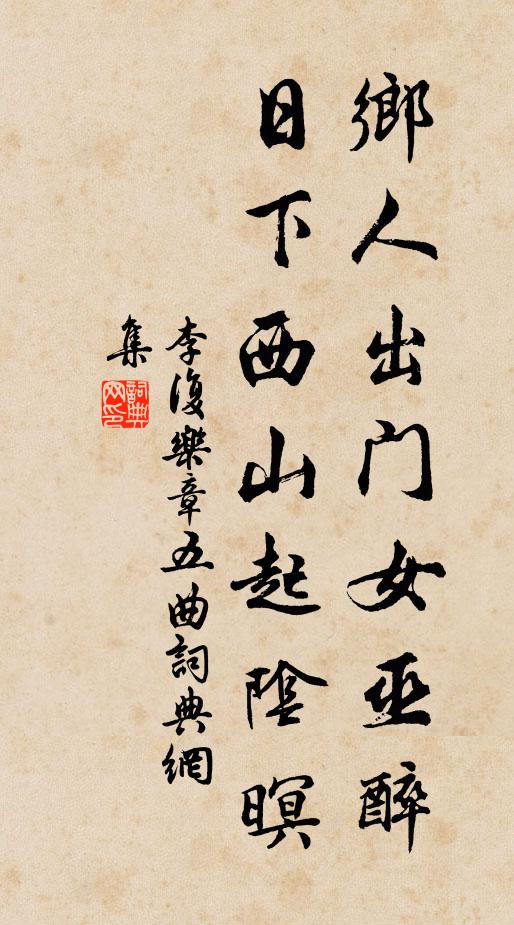 鄉人出門女巫醉
日下西山起陰暝
李復樂章五曲詞典網
集
詞典
网印